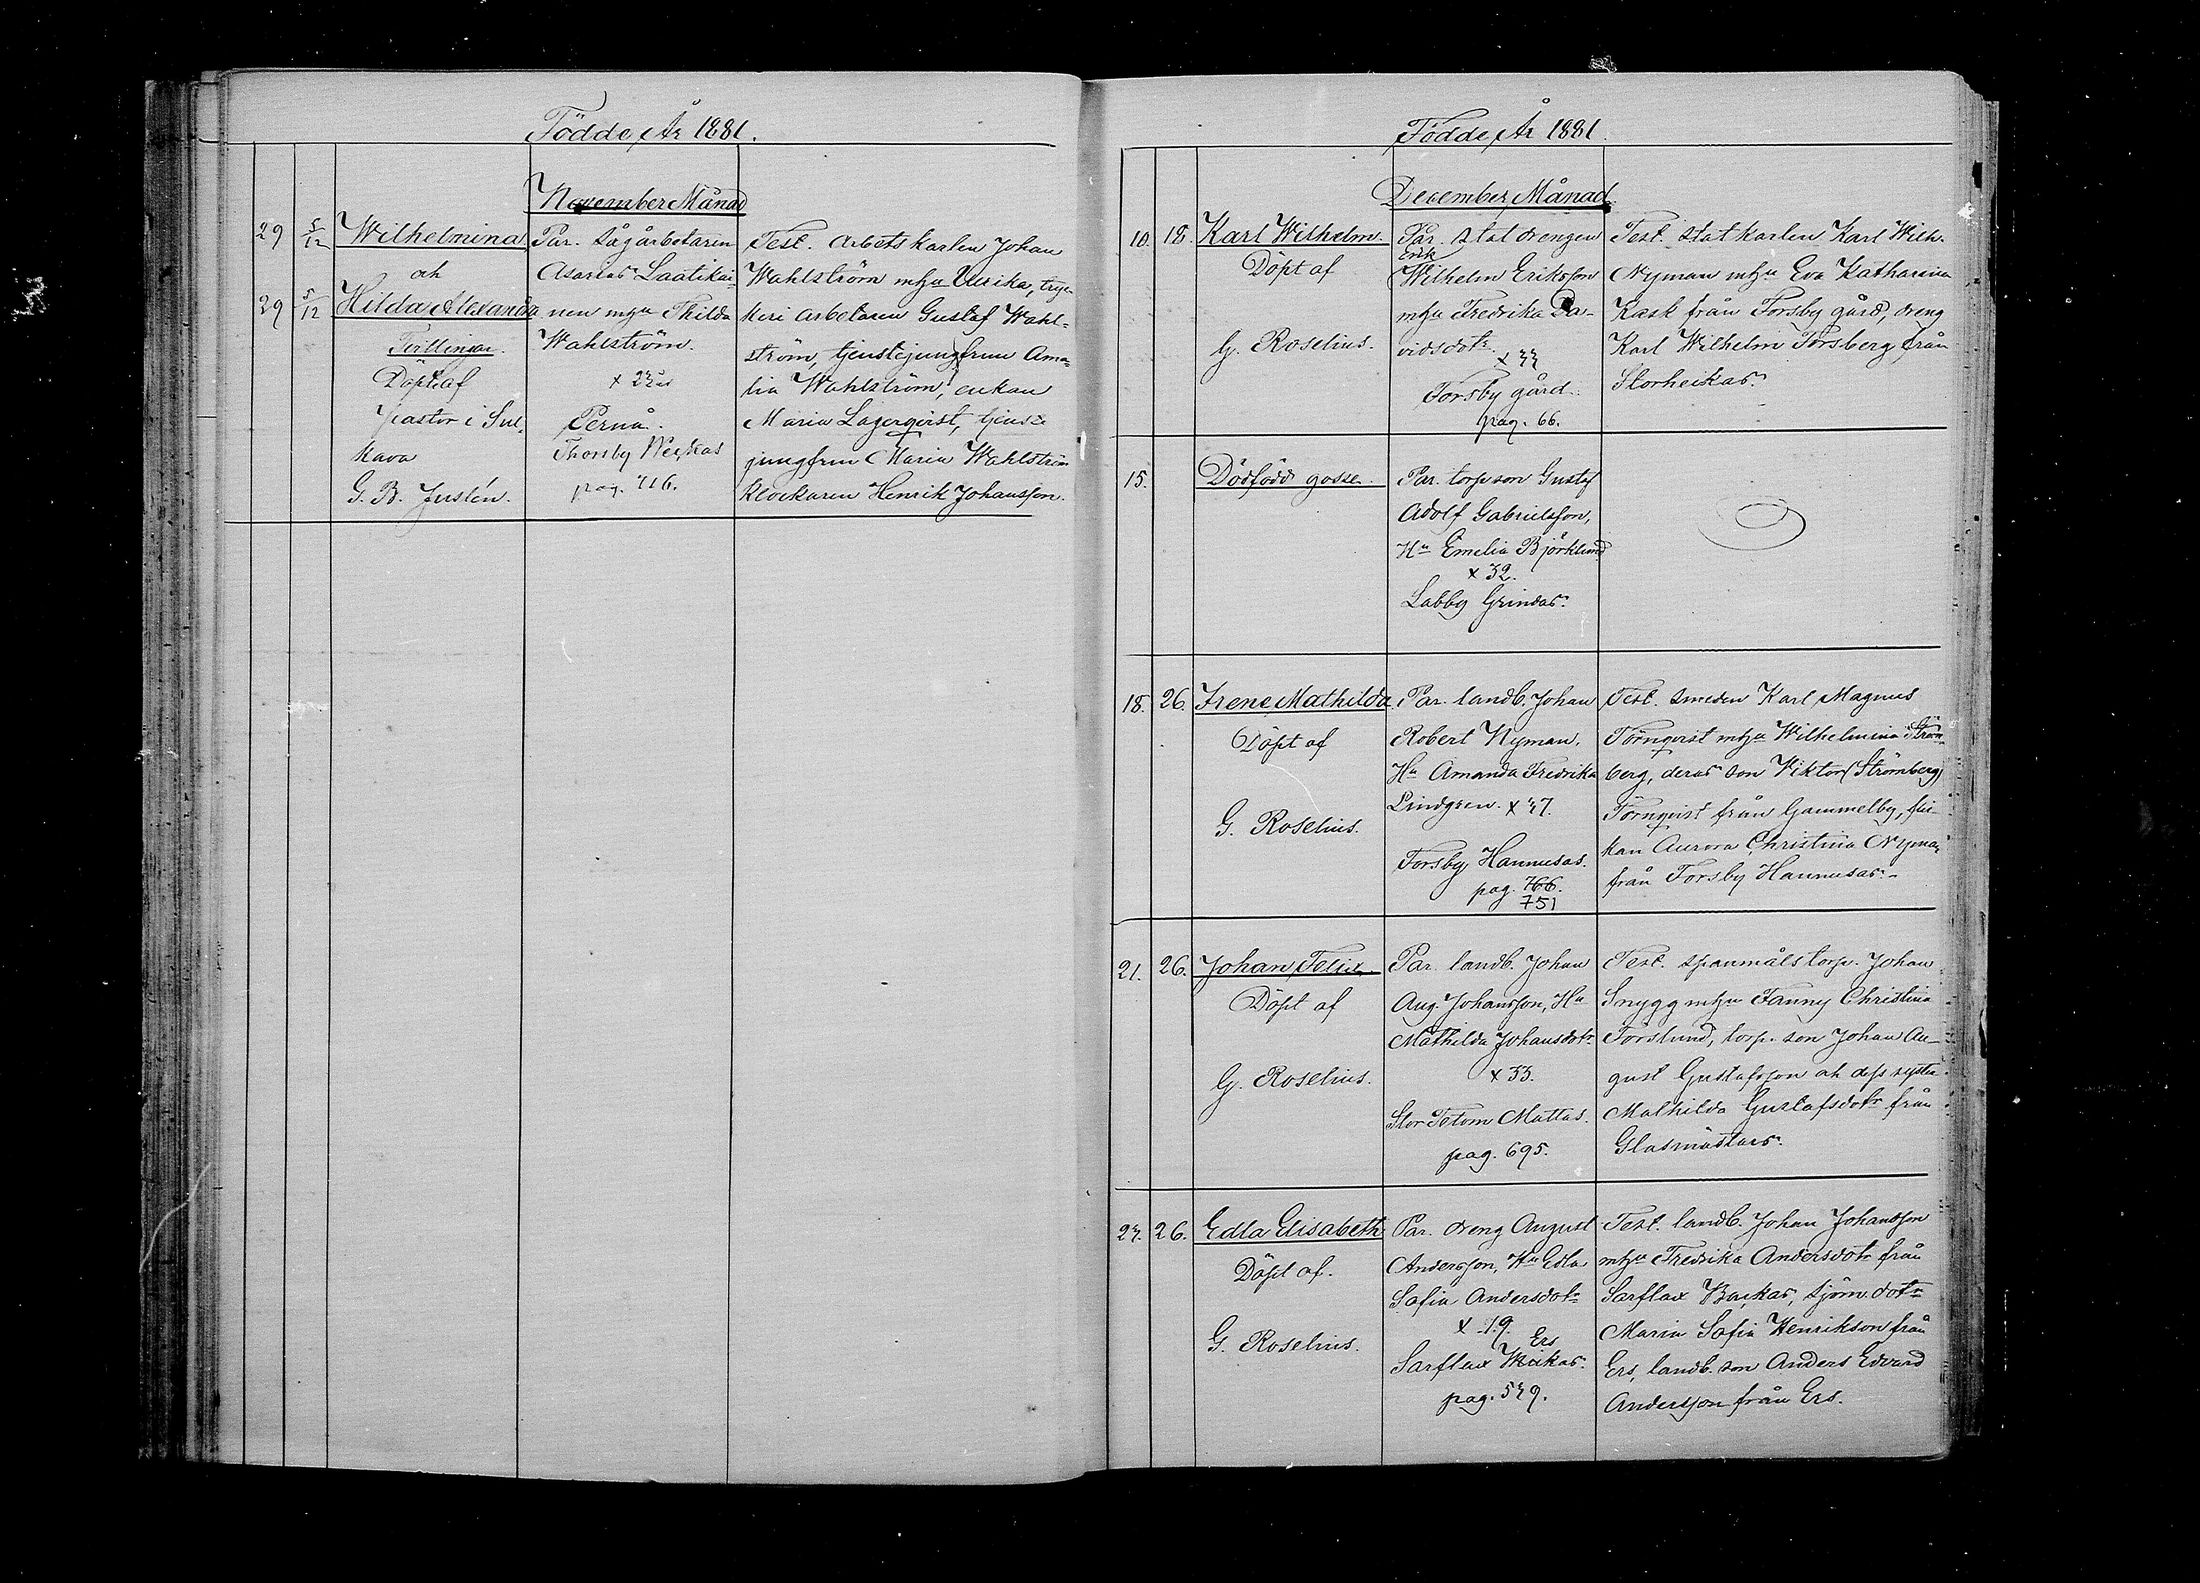 Födde År 1881.
November Månad
29 5/12 Wilhelmina
och
29 5/12 Hilda Alexandra
Tvillingar.
Döpt af
pastor i Sul-
kava
G. B. Justén.
Par. sågarbetaren
Asarias Laatikai-
nen mhu Thilda
Wahlström.
Pernå.
Thorsby Weckas
pag. 716.
Test. arbetskarlen Johan
Wahlström mhu Ulrika, tryc-
keri arbetaren Gustaf Wahl-
ström, tjenstejungfrun Ama-
lia Wahlström, enkan
Maria Lagerqvist, tjenste
jungfrun Maria Wahlström
klockaren Henrik Johansson.
Födde År 1881.
December Månad.
10. 18. Karl Wilhelm.
Döpt af
G. Roselius.
Par. statdrengen
Erik
Wilhelm Eriksson
mhu Fredrika Da-
vidsdotr
x 33
Forsby gård.
pag. 66.
Test. statkarlen Karl Wilh.
Nyman mhu Eva Katharina
Kask från Forsby gård, dreng
Karl Wilhelm Forsberg från
Storheikas.
15. Dödfödd gosse.
Par. torp. son Gustaf
Adolf Gabrielsson,
Hu Emelia Björklund
x 32.
Labby Grindas.
18. 26. Irene Mathilda.
Döpt af
G. Roselius.
Par. landb. Johan
Robert Nyman.
Hu Amanda Fredrika
Lindgren. x 37.
Forsby Hannusas.
pag. 766.
751
Test. smeden Karl Magnus
Törnqvist mhu Wilhelmina Ström-
berg, deras son Viktor (Strömberg)
Törnqvist från Gammelby, flic-
kan Aurora Christina Nyman
från Forsby Hannusas.-
21. 26. Johan Felix.
Döpt af
G. Roselius.
Par. landb. Johan
Aug. Johansson, Hu
Mathilda Johansdotr
x 33.
Stor Tetom Mattas.
pag. 695.
Test. spanmålstorp. Johan
Snygg mhu Fanny Christina
Forslund, torp. son Johan Au-
gust Gustafsson och dess syster
Mathilda Gustafsdotr från
Glasmästars.
23. 26. Edla Elisabeth
Döpt af.
G. Roselius.
Par. dreng August
Andersson, Hu Edla
Sofia Andersdotr
x 19.
Ers
Sarflax Mickas.
pag. 539.
Test. landb. Johan Johansson
mhu Fredrika Andersdotr från
Sarflax Backas, sjöm. dotr
Maria Sofia Henrikson från
Ers, landb. son Anders Edvard
Andersson från Ers.